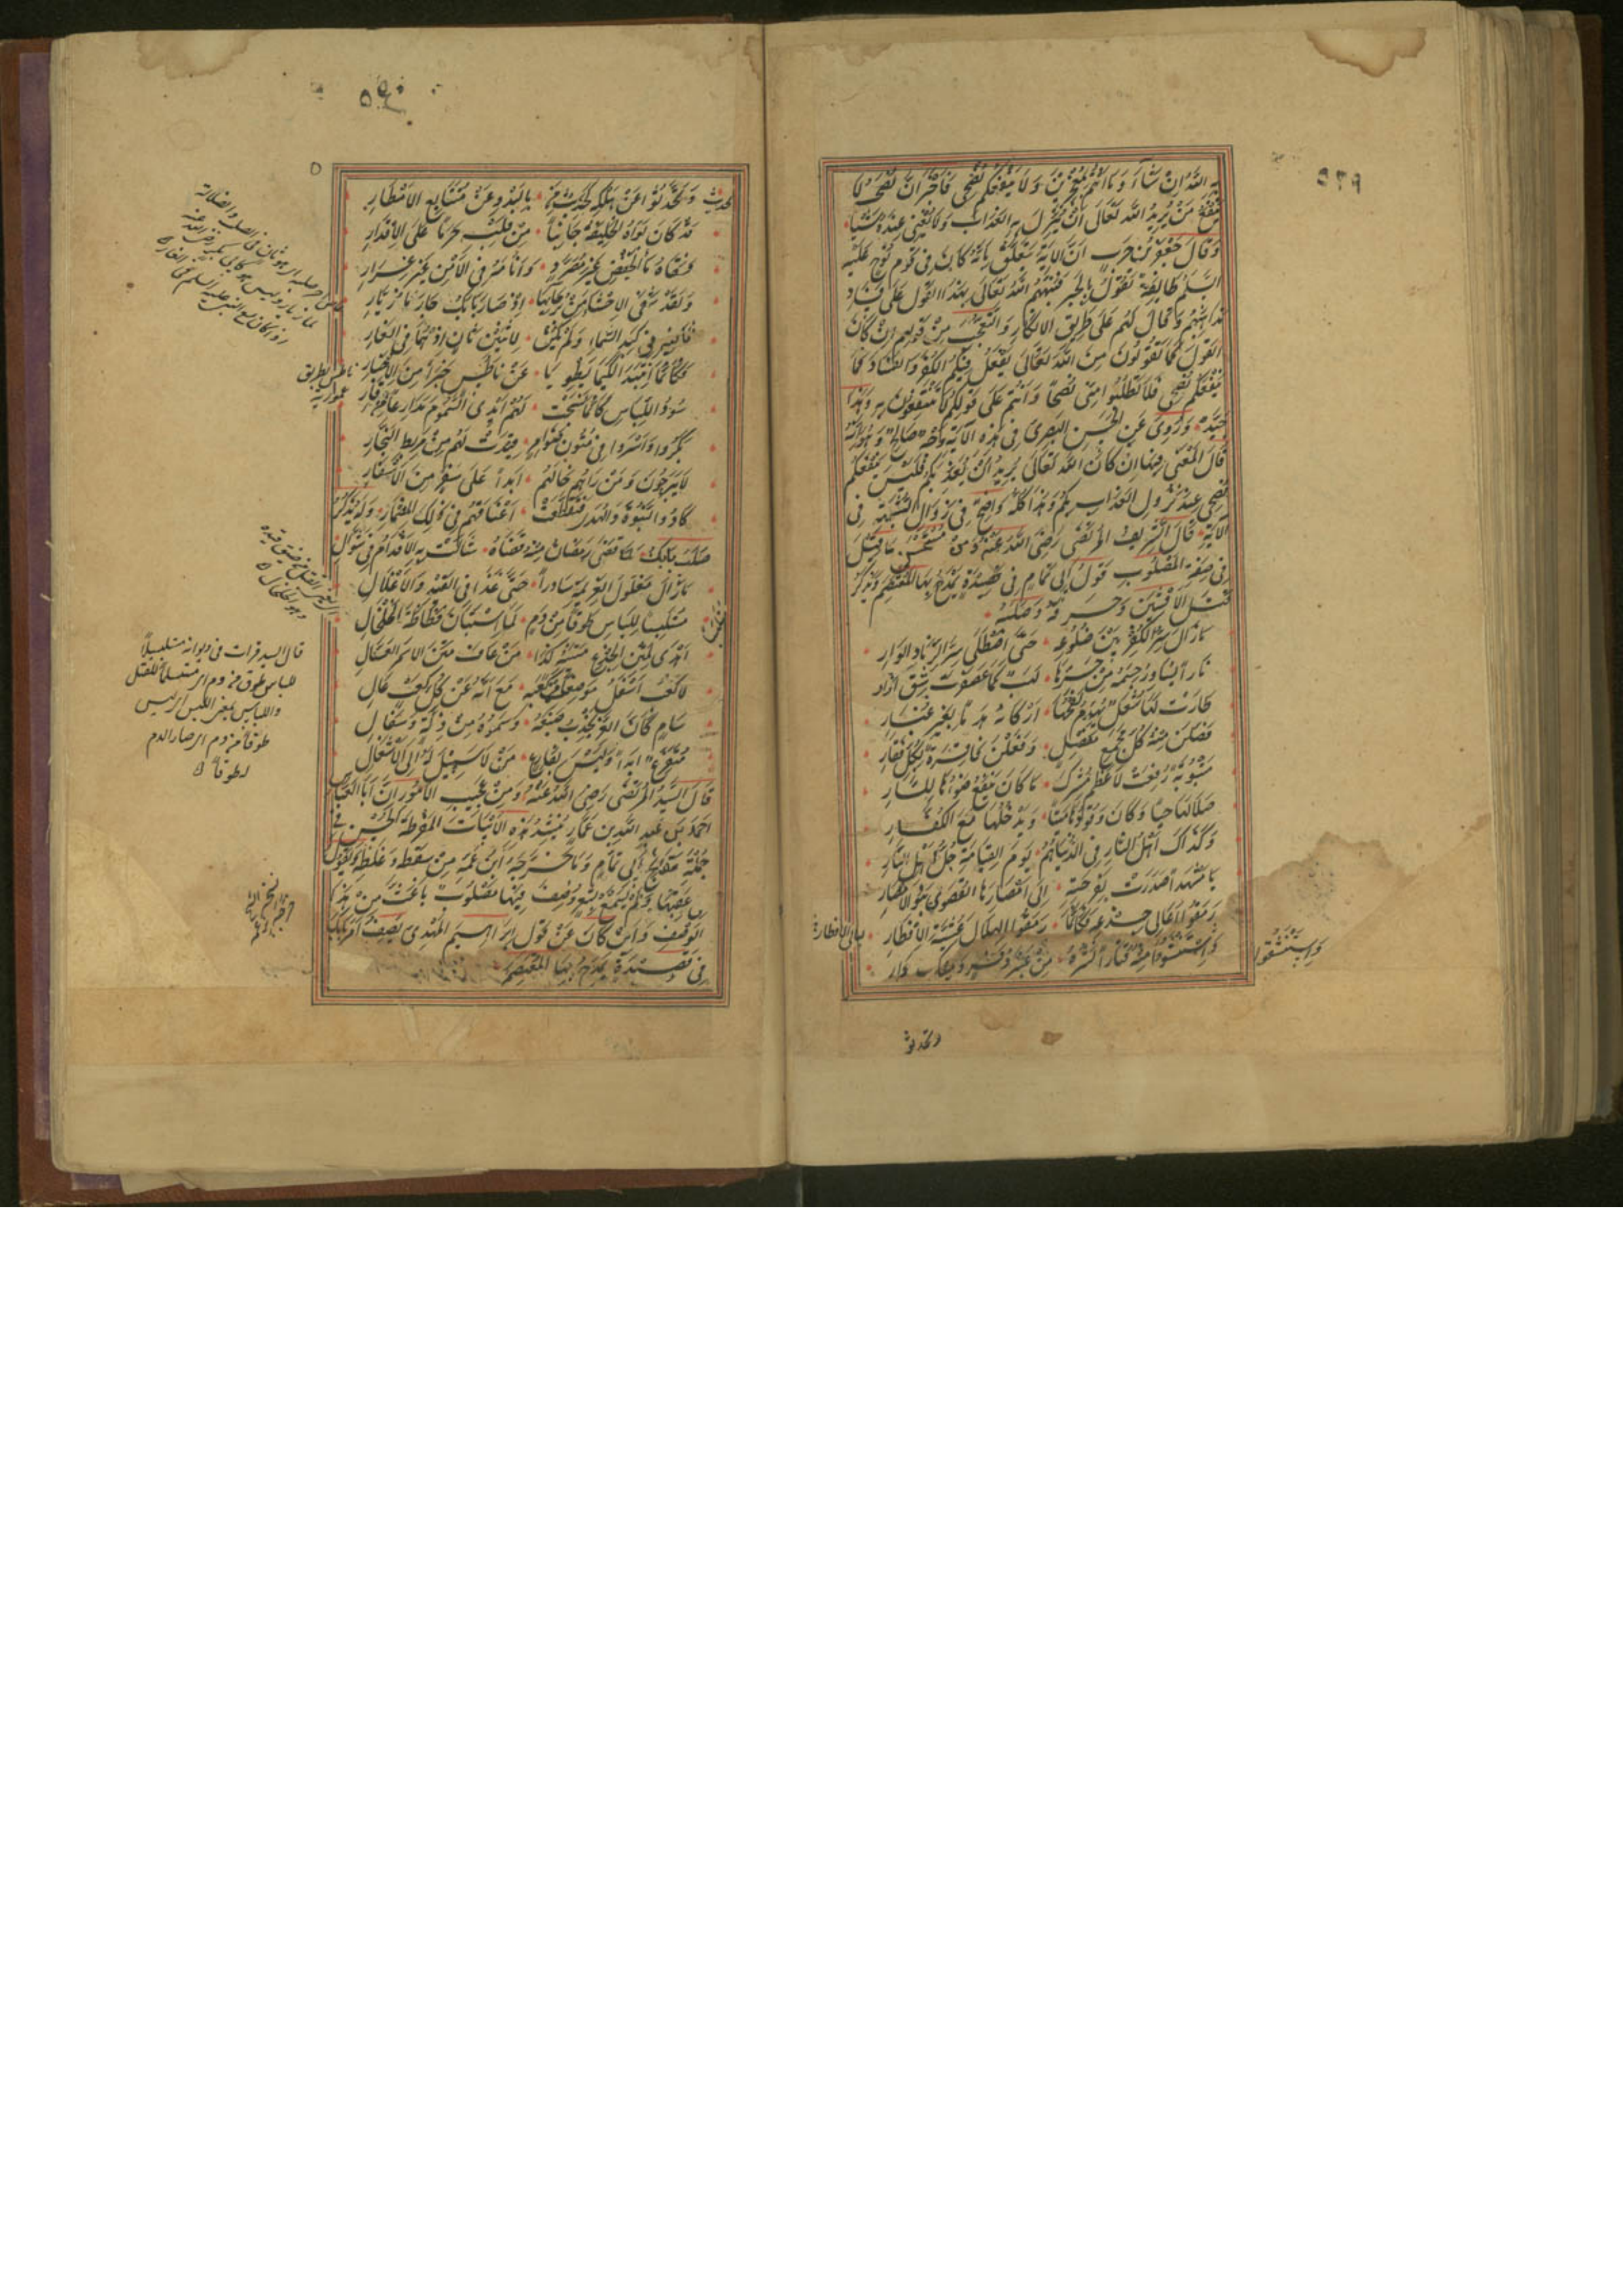 ٥٣٩
بِهِ اللهُ اِنْ شَآءَ وَمَا اَنْتُمْ بِمُعْجِزِيْنَ وَلَا يَنْفَعُكُمْ نُصْحِي فَاَخْبَرَ اَنَّ نُصْحَهُ لَا
يَنْفَعُ مَنْ يُرِيْدُ اللهُ تَعَالٰى اَنْ يُنْزِلَ بِهِ الْعَذَابَ وَلَا يُغْنِى عَنْهُ شَيْئًا
وَقَالَ جَعْفَرُ بْنُ حَرْبٍ اِنَّ الْاٰيَةَ تَتَعَلَّقُ بِاَنَّهُ كَانَ فِى قَوْمِ نُوْحٍ عَلَيْهِ
السَّلٰمُ طَائِفَةٌ تَقُوْلُ بِالْجَبْرِ فَنَبَّهَهُمُ اللهُ تَعَالٰى بِهٰذَا الْقَوْلِ عَلٰى فَسَادِ
مَذَاهِبِهِمْ وَقَالَ لَهُمْ عَلٰى طَرِيْقِ الْاِنْكَارِ وَالتَّعَجُّبِ مِنْ قَوْلِهِمْ اِنْ كَانَ
الْقَوْلُ كَمَا تَقُوْلُوْنَ مِنَ اللهَ تَعَالٰى يَفْعَلُ فِيْكُمُ الْكُفْرَ وَالْفَسَادَ فَمَا
يَنْفَعُكُمْ نُصْحِي فَلَا تَطْلُبُوا مِنِّى نُصْحًا وَاَنْتُمْ عَلٰى قَوْلِكُمْ لَا تَنْتَفِعُوْنَ بِهِ وَهٰذَا
جَيِّدٌ وَرُوِىَ عَنِ الْحَسَنِ الْبَصْرِىِّ فِى هٰذِهِ الْاٰيَةِ وَجْهٌ صَالِحٌ وَهُوَ اَنَّهُ
قَالَ الْمَعْنٰى فِيْهَا اِنْ كَانَ اللهُ تَعَالٰى يُرِيْدُ اَنْ يُعَذِّبَكُمْ فَلَيْسَ يَنْفَعُكُمْ
نُصْحِي عِنْدَ نُزُوْلِ الْعَذَابِ بِكُمْ وَهٰذَا كُلُّهُ وَاضِحٌ فِى زَوَالِ الشُّبْهَةِ فِى
الْاٰيَةِ قَالَ الشَّرِيْفُ الْمُرْتَضٰى رَضِىَ اللهُ عَنْهُ وَمِنْ مُسْتَحْسَنِ مَا قِيْلَ
فِى صِفَةِ الْمَصْلُوْبِ قَوْلُ اَبِى تَمَّامٍ فِى قَصِيْدَةٍ يَمْدَحُ بِهَا الْمُعْتَصِمَ وَيَذْكُرُ
قَتْلَ الْاَفْشِيْنِ وَحَرْقَهُ وَصَلْبَهُ
مَا زَالَ سِرُّ الْكُفْرِ بَيْنَ ضُلُوْعِهِ حَتّٰى اصْطَلٰى سِرَّ الزِّنَادِ الْوَارِى
نَارًا يُسَاوِرُ جِسْمَهُ مِنْ حَرِّهَا لَهَبٌ كَمَا عَصْفَرْتَ شِقَّ اِزَارِ
طَارَتْ لَهَا شُعَلٌ يُهَدِّمُ لَفْحُهَا اَرْكَانَهُ هَدْمًا بِغَيْرِ غُبَارِ
فَصَّلْنَ مِنْهُ كُلَّ مَجْمَعِ مَفْصِلٍ وَفَعَلْنَ فَاقِرَةً بِكُلِّ فَقَارِ
مَشْبُوْبَةً رُفِعَتْ لِاَعْظُمِ مُشْرِكٍ مَا كَانَ يَرْفَعُ ضَوْءَهَا لِلسَّارِى
صَلّٰى لَهَا حَيًّا وَكَانَ وَقُوْدَهَا مَيْتًا وَيَدْخُلُهَا مَعَ الْكُفَّارِ
وَكَذَاكَ اَهْلُ النَّارِ فِى الدُّنْيَا هُمُ يَوْمَ الْقِيَامَةِ جُلُّ اَهْلِ النَّارِ
يَا مَشْهَدًا صَدَرَتْ بِفَرْحَتِهِ اِلٰى اَمْصَارِهَا الْقُصْوٰى بَنُو الْاَمْصَارِ
رَمَقُوا اَعَالِى جِذْعِهِ فَكَاَنَّمَا رَمَقُوا الْهِلَالَ عَشِيَّةَ الْاِفْطَارِ
وَاسْتَنْشَؤُا مِنْهُ قُتَارًا نَشْرُهُ مِنْ عَنْبَرٍ ذَفِرٍ وَمِسْكِ دَارِى
وَاسْتَنْشَقُوا
وتحدثوا
٥٤٠
وَتَحَدَّثُوا عَنْ هُلْكِهِ كَحَدِيْثِ مَنْ بِالْبَدْوِ عَنْ مُتَتَابِعِ الْاَمْطَارِ
قَدْ كَانَ بَوَّاَهُ الْخَلِيْفَةُ جَانِبًا مِنْ قَلْبِهِ حَرَمًا عَلَى الْاَقْدَارِ
فَسَقَاهُ مَاءَ الْخَفْضِ غَيْرَ مُصَرَّدٍ وَاَنَامَهُ فِى الْاَمْنِ غَيْرَ غِرَارِ
وَلَقَدْ شَفَى الْاَحْشَاءَ مِنْ بُرَحَائِهَا اِذْ صَارَ بَابَكُ جَارَ مَازِيَّارِ
ثَانِيْهِ فِى كَبِدِ السَّمَاءِ وَلَمْ يَكُنْ لِاثْنَيْنِ ثَانٍ اِذْ هُمَا فِى الْغَارِ
فَكَاَنَّمَا انْتَبَذَا لِكَيْمَا يَطْوِيَا عَنْ نَاطِسٍ خَبَرًا مِنَ الْاَخْبَارِ
سُوْدُ اللِّبَاسِ كَاَنَّمَا نَسَجَتْ لَهُمْ اَيْدِى السَّمُوْمِ مَدَارِعًا مِنْ قَارِ
بَكَرُوا وَاَسْرَوْا فِى مُتُوْنِ ضَوَامِرٍ قِيْدَتْ لَهُمْ مِنْ مَرْبِطِ النَّجَّارِ
لَا يَبْرَحُوْنَ وَمَنْ رَاٰهُمْ خَالَهُمْ اَبَدًا عَلٰى سَفَرٍ مِنَ الْاَسْفَارِ
كَادُوا النُّبُوَّةَ وَالْهُدٰى فَتَقَطَّعَتْ اَعْنَاقُهُمْ فِى ذٰلِكَ الْمِضْمَارِ وَلَهُ يَذْكُرُ
صَلْبَ بَابَكَ لَمَّا قَضٰى رَمَضَانُ مِنْهُ قَضَاءَهُ شَالَتْ بِهِ الْاَيَّامُ فِى شَوَّالِ
مَا زَالَ مَغْلُوْلَ الْعَزِيْمَةِ سَادِرًا حَتّٰى غَدَا فِى الْقَيْدِ وَالْاَغْلَالِ
مُتَلَبِّسًا لِلْبَاسِ طَوْقًا مِنْ دَمٍ لَمَّا اسْتَبَانَ فَظَاظَةَ الْخَلْخَالِ
اَهْدٰى لِمَتْنِ الْجِذْعِ مَتْنَيْهِ كَذَا مَنْ عَافَ مَتْنَ الْاَسْمَرِ الْعَسَّالِ
لَا كَعْبَ اَسْفَلُ مَوْضِعًا مِنْ كَعْبِهِ مَعَ اَنَّهُ عَنْ كُلِّ كَعْبٍ عَالِ
سَامٍ كَاَنَّ الْعِزَّ يَجْذِبُ ضَبْعَهُ وَسُمُوُّهُ مِنْ ذِلَّةٍ وَسَفَالِ
مُتَفَرِّغٌ اَبَدًا وَلَيْسَ بِفَارِغٍ مَنْ لَا سَبِيْلَ لَهُ اِلَى الْاَشْغَالِ
قَالَ السَّيِّدُ الْمُرْتَضٰى رَضِىَ اللهُ عَنْهُ وَمِنْ عَجِيْبِ الْاُمُوْرِ اَنَّ اَبَا الْعَبَّاسِ
اَحْمَدَ بْنَ عُبَيْدِ اللهِ بْنِ عَمَّارٍ يُنْشِدُ هٰذِهِ الْاَبْيَاتَ الْمُفْرِطَةَ الْحُسْنِ فِى
جُمْلَةِ مَقَابِحِ اَبِى تَمَّامٍ وَمَا خَرَّجَهُ بِزَعْمِهِ مِنْ سَقَطِهِ وَغَلَطِهِ وَيَقُوْلُ
فِى عَقِبِهَا وَلَمْ يُسْمَعْ بِشِعْرٍ وُصِفَ فِيْهَا مَصْلُوْبٌ بِاَغَثَّ مِنْ هٰذَا
الْوَصْفِ وَاَيْنَ كَانَ عَنْ قَوْلِ اِبْرَاهِيْمَ الْمَهْدِىِّ يَصِفُ اَمْرَ بَابَكَ
فِى قَصِيْدَةٍ يَمْدَحُ بِهَا الْمُعْتَصِمَ
قال السيد فرات فى ديوانه متلبسًا
للباس طوق من دم اى متقبلا للقتل
طوقًا من دم اى صار الدم
لطوقًا